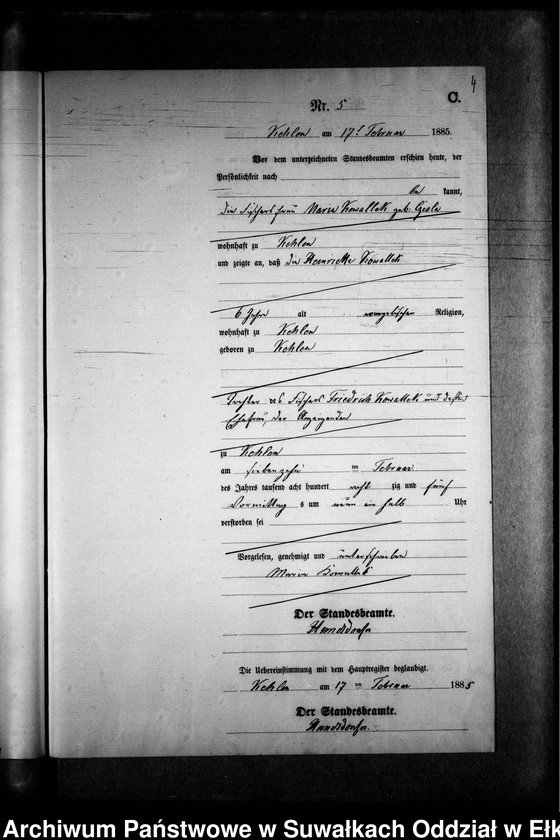 4
C.
Nr. 5
Kehlen am 17t Februar 1885.
Vor dem unterzeichneten Standesbeamten erschien heute, der
Persönlichkeit nach
be kannt,
die Fischersfrau Marie Kowallek geb.
wohnhaft zu Kehlen
und zeigte an, daß die Henriette Kowallek
6 Jahre alt evangelischer Religion,
wohnhaft zu Kehlen
geboren zu Kehlen
Tochter des Fischers Friedrich Kowallek und dessen
Ehefrau, der Anzeigenden
zu Kehlen
am siebenzehn ten Februar
des Jahres tausend acht hundert acht zig und fünf
Vormittag s um neun ein halb Uhr
verstorben sei
Vorgelesen, genehmigt und unterschrieben
Marie Kowallek
Der Standesbeamte.
Die Uebereinstimmung mit dem Hauptregister beglaubigt.
Kehlen am 17 ten Februar 1885
Der Standesbeamte.
Archiwum Państwowe w Suwałkach Oddział w Ełk